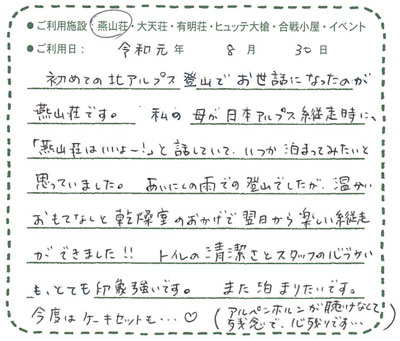 ●ご利用施設：燕山荘・大天荘・有明荘・ヒュッテ大槍・合戦小屋・イベント
●ご利用日： 令和元年 8月 30日
初めての北アルプス登山でお世話になったのが
燕山荘です。 私の母が日本アルプス縦走時に、
「燕山荘はいいよー!」と話していて、いつか泊まってみたいと
思っていました。 あいにくの雨での登山でしたが、温かい
おもてなしと乾燥室のおかげで翌日から楽しい縦走
ができました!! トイレの清潔さとスタッフの心づかい
も、とても印象強いです。 また泊まりたいです。
今度はケーキセットも…♡ (アルペンホルンが聴けなくて
残念で、心残りです…)